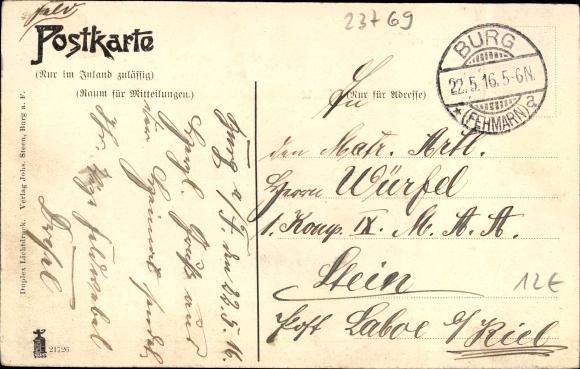 Feld
Postkarte
(Nur im Inland zulässig)
(Raum für Mitteilungen.)
Burg a/F. den 22.5.16.
Herzl. Grüße aus
der Heimat sendet
Ihr
Duplex Lichtdruck. Verlag Johs. Steen, Burg a. F.
21726
2376g
BURG
22.5.16.5-6N.
* (FEHMARN) a
(Nur für Adresse)
An
den Matr. Artl.
Herrn Würfel
1. Komp. IX. M. A. A.
Stein
Post Laboe b/Kiel
12€